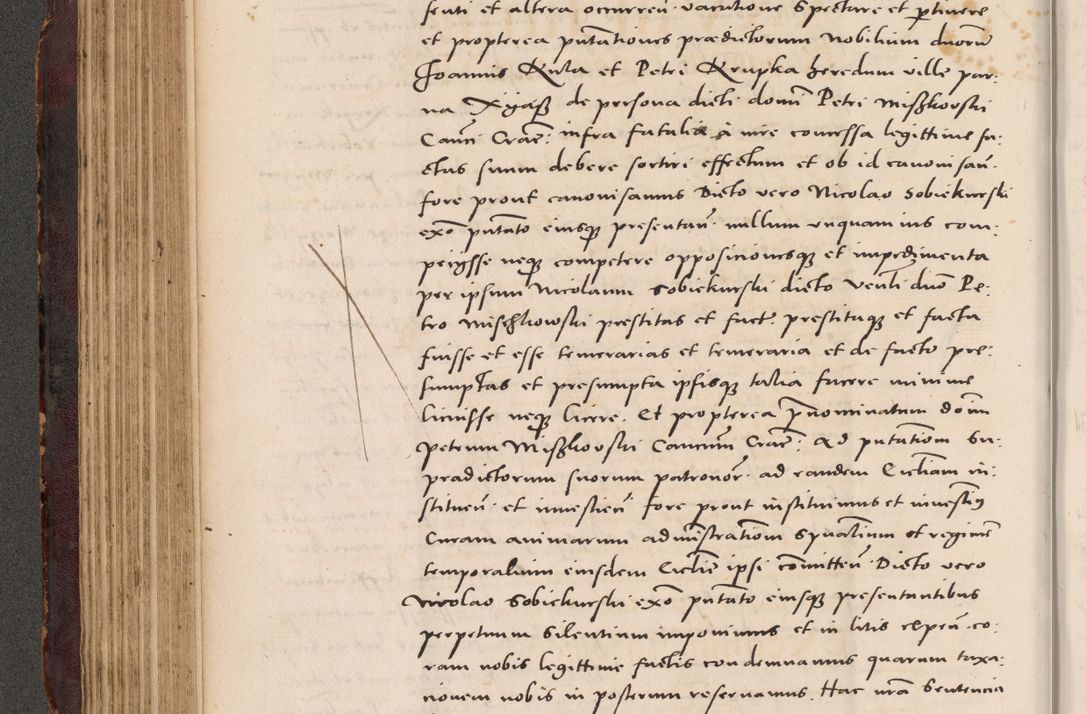 senti et altera occurreñ. varatione Spectare et ꝑtinere
et propterea pñtationes prædictorum Nobilium duorū
Joannis Kula et Petri Krupka heredum ville par:
na Xyąsz de persona dicti domi Petri Miszkovski
Cañci Crac̃: infra fatalia a iure concessa legittime fa:
ctas suum debere sortiri effectum et ob id canonisañ.
fore prout canonisamus Dicto vero Nicolao Sobiekurski
exõ pñtato eiusqꝫ presentañ. nullum unquam ius com:
peiisse neqꝫ competere oppositionesqꝫ et impedimenta
per ipsum Nicolaum Sobiekurski dicto Venli duõ Pe:
tro Mischkowski prestitas et fact. prestituqꝫ et facta
fuisse et esse temerarias et temeraria et de facto pre:
sumptas et presumpta ipsisqꝫ talia facere minime
licuisse neqꝫ licere. Et propterea p̃nominatum doim
petrum Miszkovski Cancum Crac̃: ad pñtatiom su:
pradictorum suorum patronor. ad eandem Eccliam in:
stitueñ. et investieñ fore prout instituimus et investim9
Curam animarum administratiom spualium et regime
temporalium eiusdem Ecclie ipsi comitteñ. Dicto vero
Nicolao Sobiekurski exõ pñtato eiusqꝫ presentantibus
perpetuum Silentium imponimus et in litis expeñ. co:
ram nobis legittime factis condemnamus quarum taxa:
cionem nobis in posterum reservamus. Hac nrã Sentencia